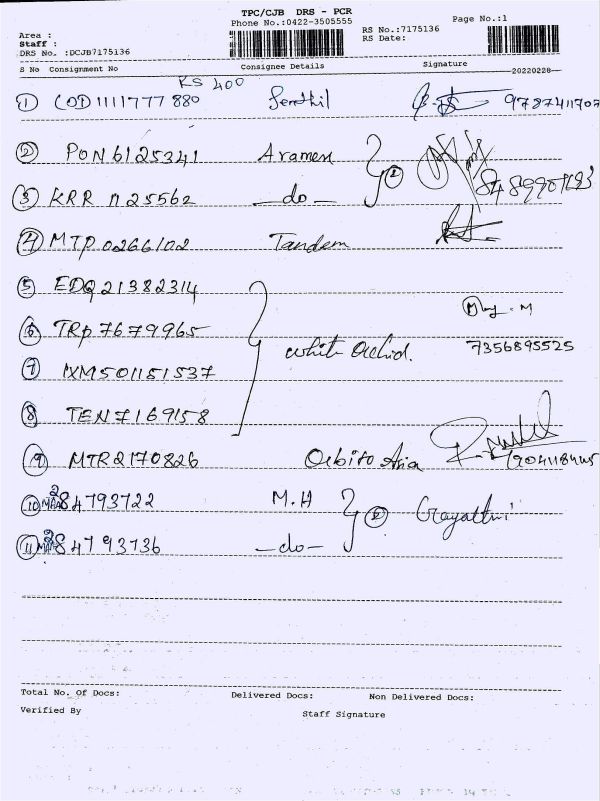 TPC/CJB DRS - PCR
Phone No.:0422-3505555 Page No.:1
Area :
Staff :
DRS No. :DCJB7175136
RS No.:7175136
RS Date:
S No Consignment No Consignee Details Signature
20220228
RS 400
1 COD1111777880 Senthil 9787411707
2 PON6125341 Aramex 2
3 KRR 1125562 -do-
4 MTP0266102 Tandem
5 EDQ21382314
6 TRP7679965 White Orchid. 7356895525
7 IXM501151537
8 TEN7169158
9 MTR2170826 Orbito Asia
10 MAA284793722 M.H 2 Gayathri
11 MAA284793736 -do-
Total No. Of Docs: Delivered Docs: Non Delivered Docs:
Verified By Staff Signature